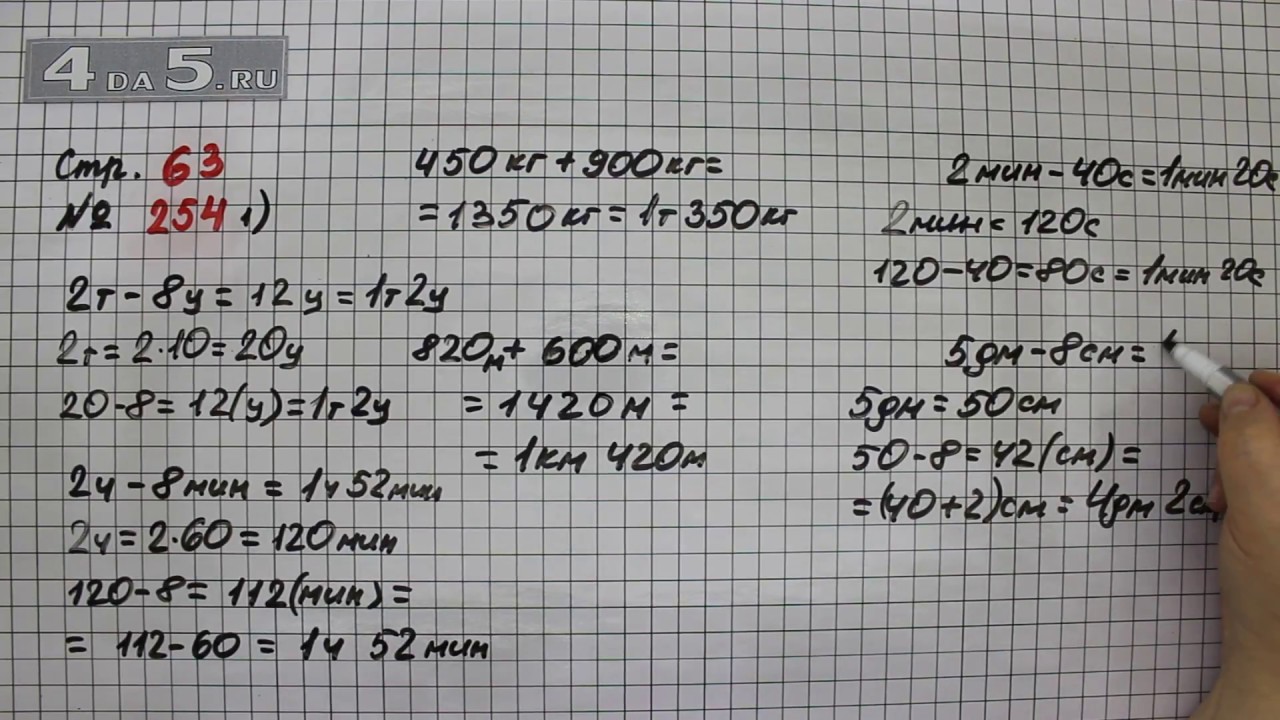 4 DA 5.RU
Стр. 63
№ 254 1)
2т - 8ц = 12ц = 1т 2ц
2т = 2·10 = 20ц
20 - 8 = 12(ц) = 1т 2ц
2ч - 8мин = 1ч 52мин
2ч = 2·60 = 120мин
120 - 8 = 112(мин) =
= 112 - 60 = 1ч 52мин
450кг + 900кг =
= 1350кг = 1т 350кг
820м + 600м =
= 1420м =
= 1км 420м
2мин - 40с = 1мин 20с
2мин = 120с
120 - 40 = 80с = 1мин 20с
5дм - 8см =
5дм = 50см
50 - 8 = 42(см) =
= (40 + 2)см = 4дм 2см